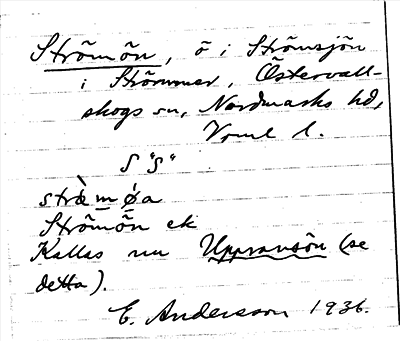 Strömön, ö i Strömsjön
i Strömmer, Östervall-
skogs sn, Nordmarks hd,
Vrml l.
stræ̀m ǿa
Strömön ek
Kallas nu Uppransön (se
detta).
E. Andersson 1936.